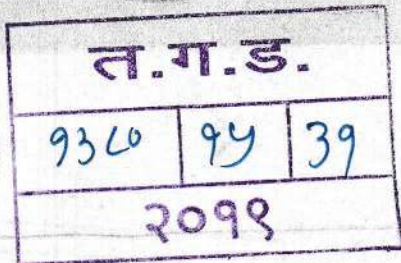 त.ग.ड.
१३८० १५ ३१
२०१९